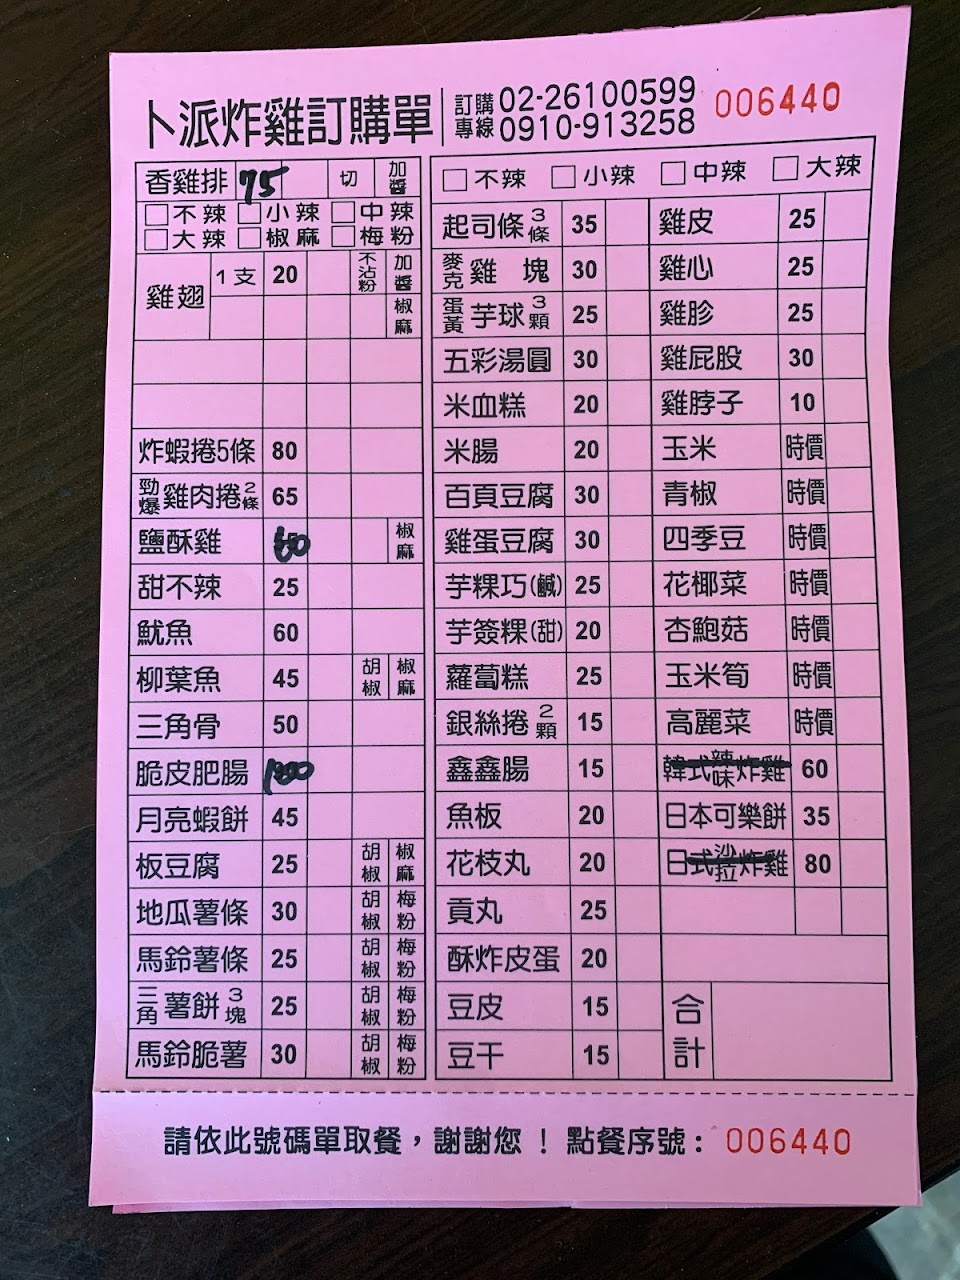 卜派炸雞訂購單 訂購專線 02-26100599 0910-913258 006440
香雞排 75 切 加醬
□不辣 □小辣 □中辣
□大辣 □椒麻 □梅粉
雞翅 1支 20 不沾粉 加醬
椒麻
炸蝦捲5條 80
勁爆雞肉捲2條 65
鹽酥雞 椒麻
甜不辣 25
魷魚 60
柳葉魚 45 胡椒 椒麻
三角骨 50
脆皮肥腸
月亮蝦餅 45
板豆腐 25 胡椒 椒麻
地瓜薯條 30 胡椒 梅粉
馬鈴薯條 25 胡椒 梅粉
三角薯餅3塊 25 胡椒 梅粉
馬鈴脆薯 30 胡椒 梅粉
□不辣 □小辣 □中辣 □大辣
起司條3條 35 雞皮 25
麥克雞塊 30 雞心 25
蛋黃芋球3顆 25 雞胗 25
五彩湯圓 30 雞屁股 30
米血糕 20 雞脖子 10
米腸 20 玉米 時價
百頁豆腐 30 青椒 時價
雞蛋豆腐 30 四季豆 時價
芋粿巧(鹹) 25 花椰菜 時價
芋簽粿(甜) 20 杏鮑菇 時價
蘿蔔糕 25 玉米筍 時價
銀絲捲2顆 15 高麗菜 時價
鑫鑫腸 15 韓式辣味炸雞 60
魚板 20 日本可樂餅 35
花枝丸 20 日式沙拉炸雞 80
貢丸 25
酥炸皮蛋 20
豆皮 15 合計
豆干 15
請依此號碼單取餐，謝謝您！點餐序號：006440